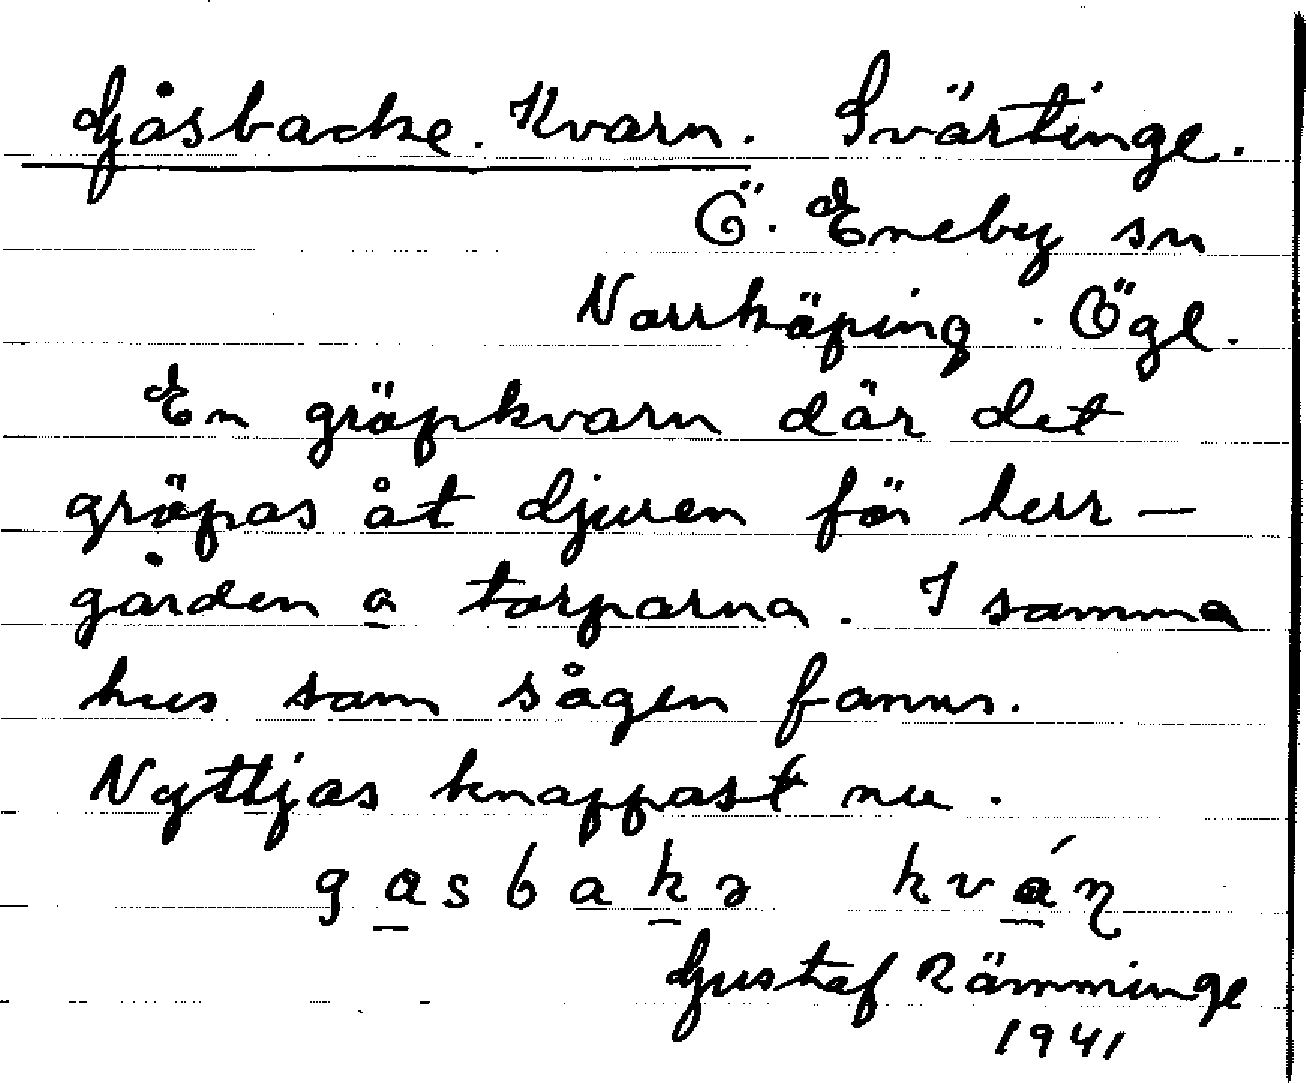 Gåsbacke. Kvarn. Svärtinge.
Ö. Eneby sn
Norrköping. Ögl.
En gröpkvarn där det
gröpas åt djuren för herr-
gården a torparna. I samma
hus som sågen fanns.
Nyttjas knappast nu.
gasbakə kván
Gustaf Rämminge
1941